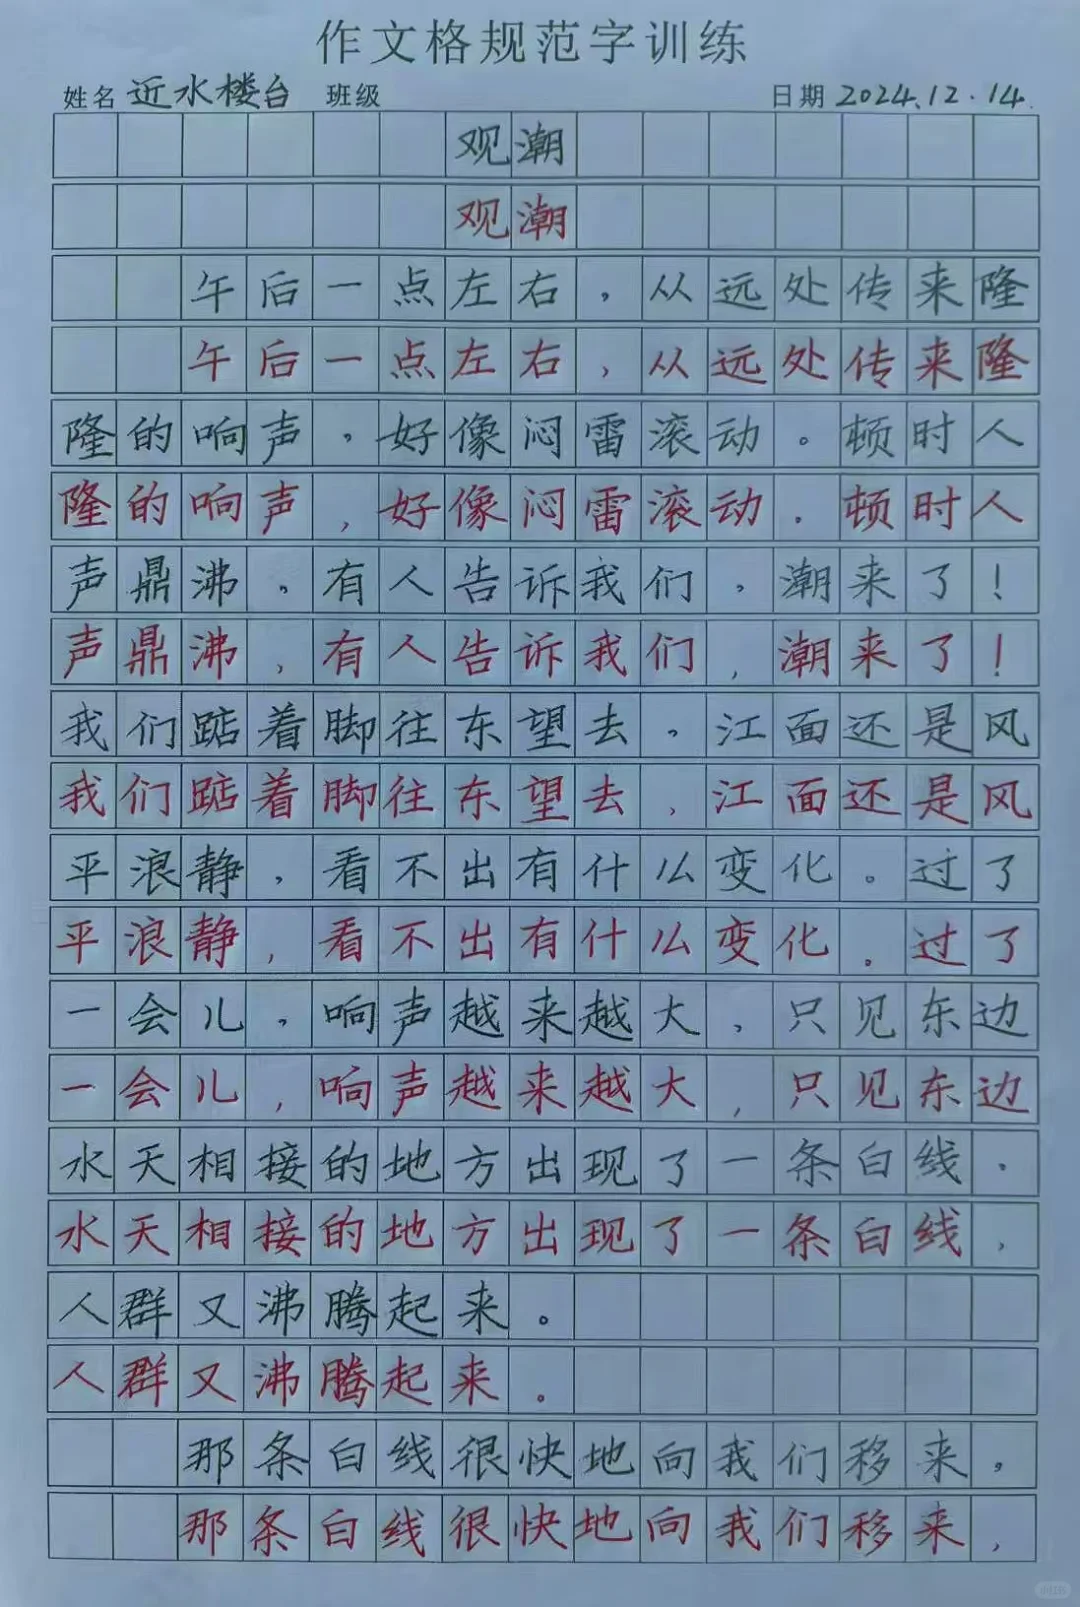 作文格规范字训练
姓名 近水楼台 班级 日期 2024.12.14.
观潮
观潮
午后一点左右，从远处传来隆
午后一点左右，从远处传来隆
隆的响声，好像闷雷滚动。顿时人
隆的响声，好像闷雷滚动。顿时人
声鼎沸，有人告诉我们，潮来了！
声鼎沸，有人告诉我们，潮来了！
我们踮着脚往东望去，江面还是风
我们踮着脚往东望去，江面还是风
平浪静，看不出有什么变化。过了
平浪静，看不出有什么变化。过了
一会儿，响声越来越大，只见东边
一会儿，响声越来越大，只见东边
水天相接的地方出现了一条白线，
水天相接的地方出现了一条白线，
人群又沸腾起来。
人群又沸腾起来。
那条白线很快地向我们移来，
那条白线很快地向我们移来，
小红书